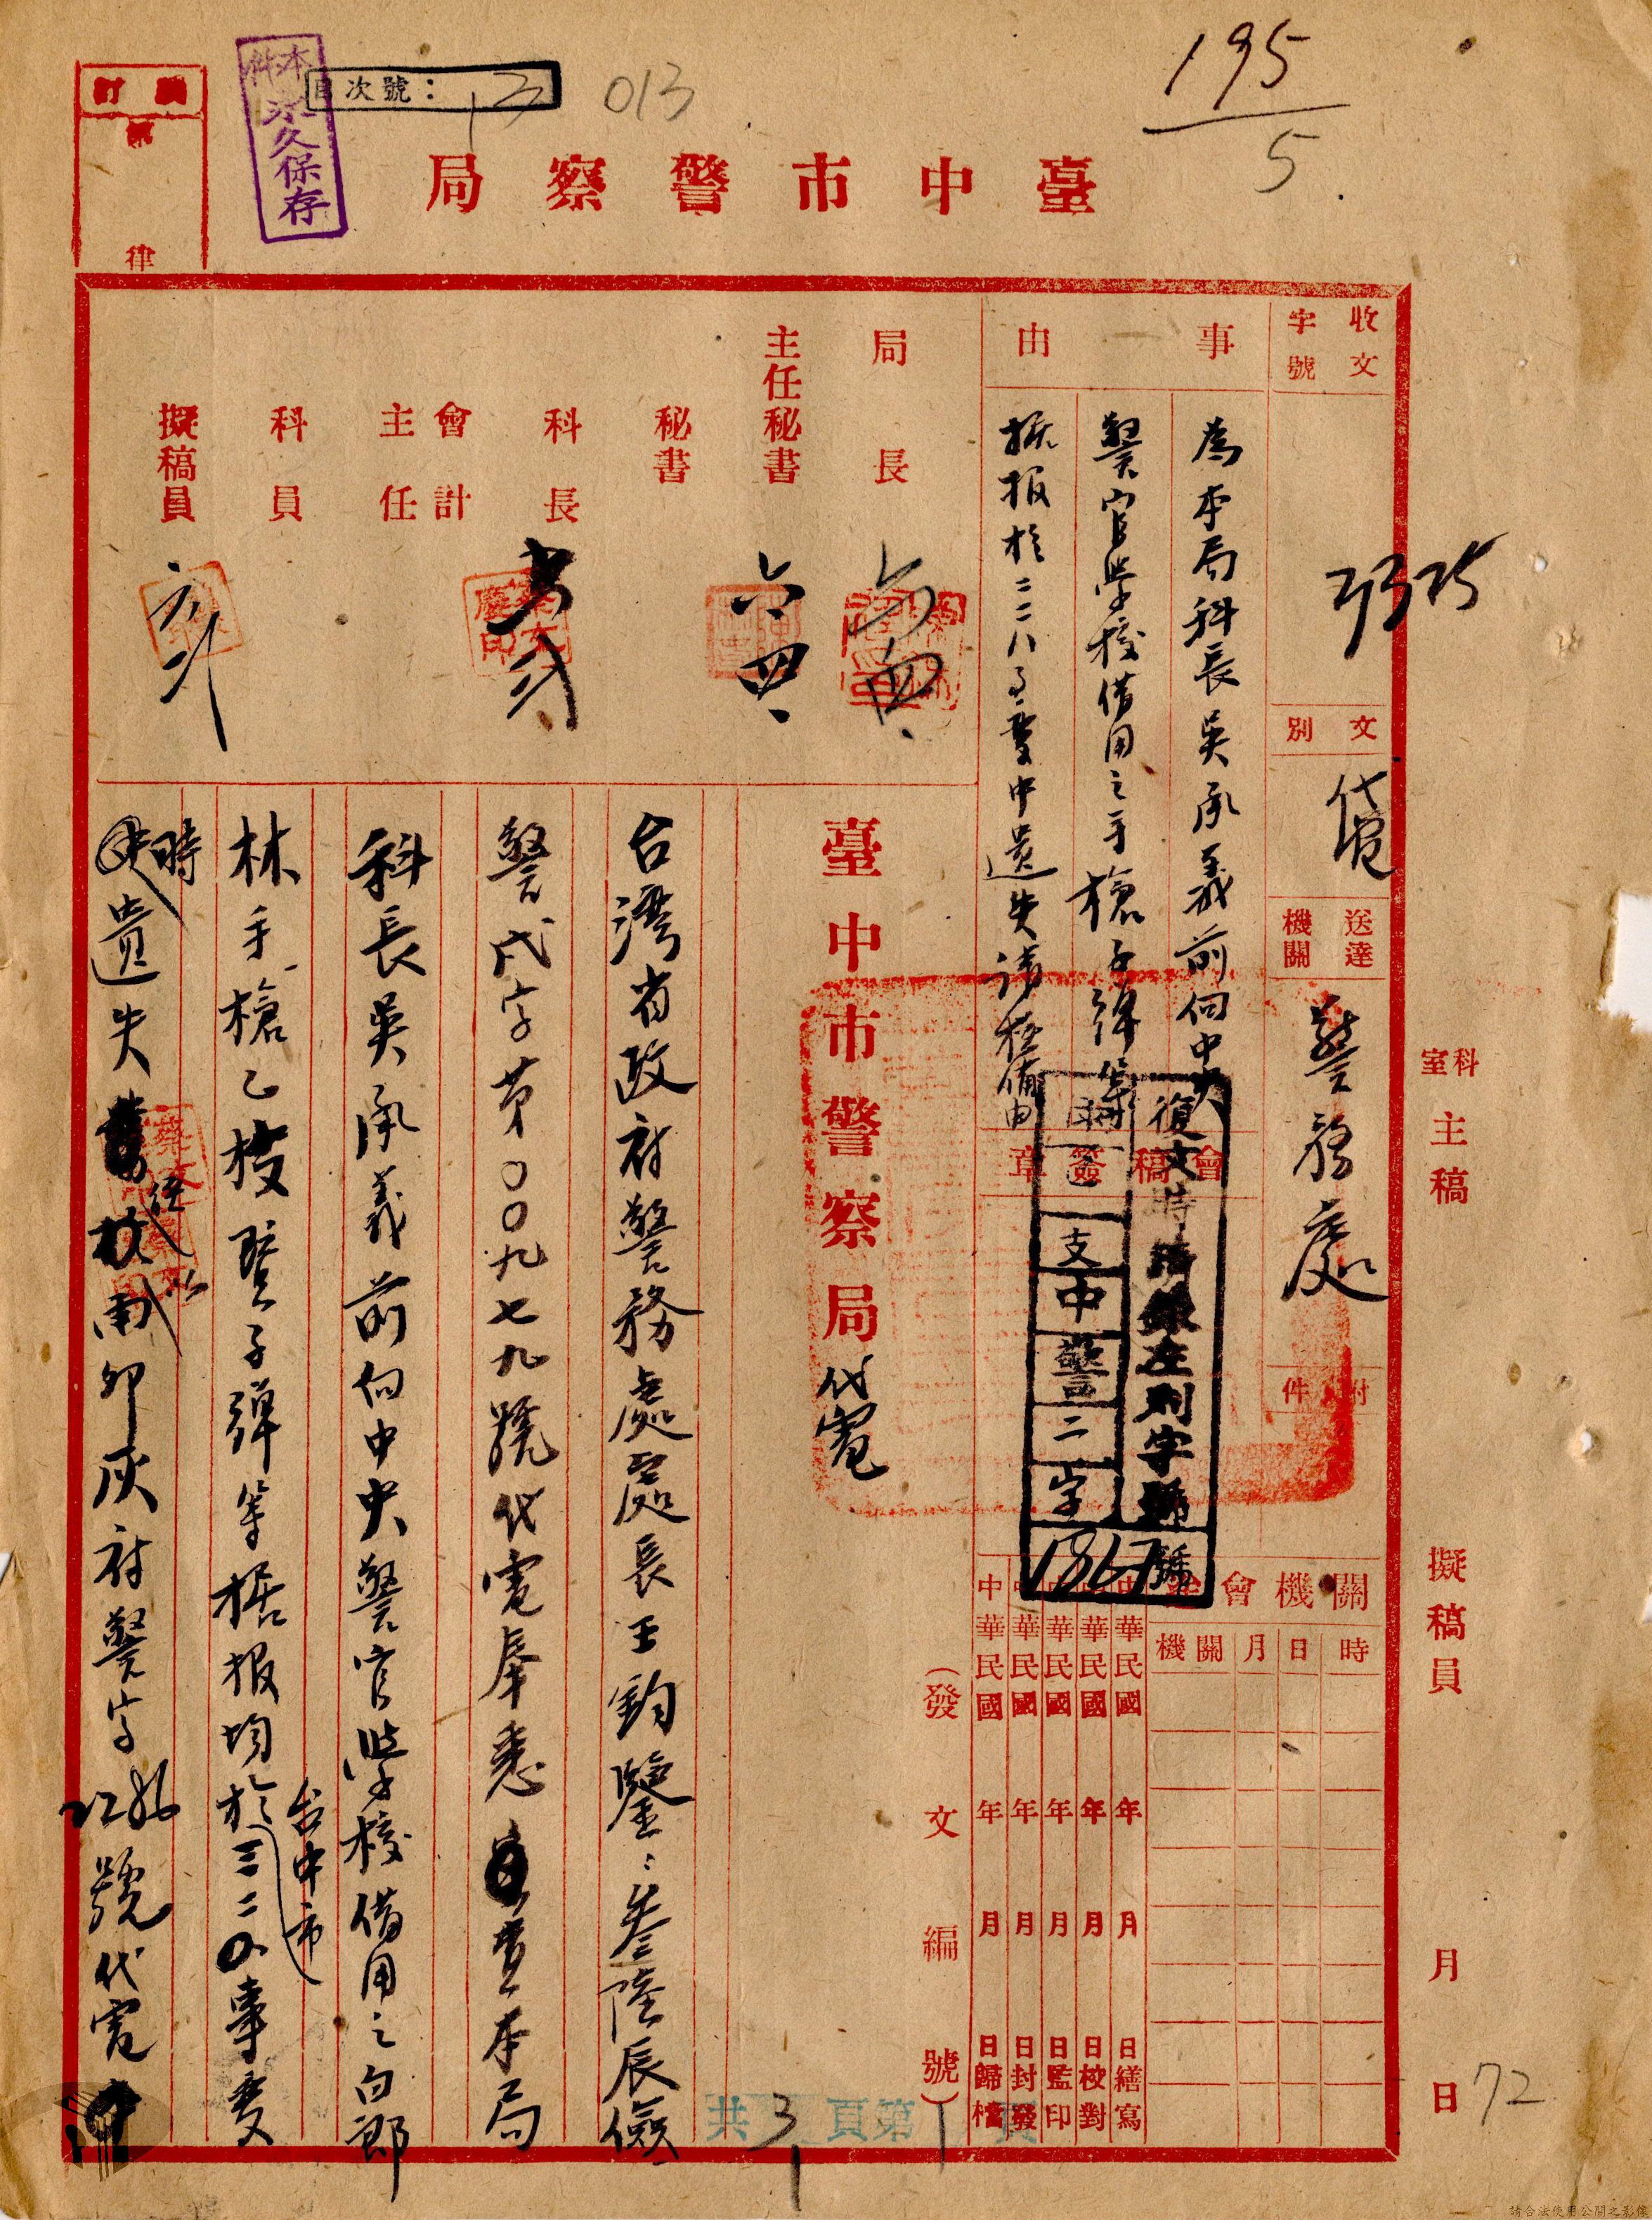 195
5
013
目次號：13
本件永久保存
裝訂
第
律
臺中市警察局
收文字號
3325
文別
代電
送達機關
警務處
附件
事由
為本局科長吳承義前向中央
警官學校借用之手槍子彈等
據報於二二八事變中遺失請核備由
會稿簽章
復文時請録左列字號
支中警二字
1867號
會機關
機關
月
日
時
中華民國 年 月 日繕寫
中華民國 年 月 日校對
中華民國 年 月 日監印
中華民國 年 月 日封發
中華民國 年 月 日歸檔
（發文編號）
局長
主任秘書
六四、
秘書
科長
會計主任
科員
擬稿員
臺中市警察局代電
台灣省政府警務處處長王鈞鑒：叁陸辰儉
警戌字第〇〇九七九號代電奉悉查本局
科長吳承義前向中央警官學校借用之白郎
林手槍乙枝暨子彈等据报均於台中市二二八事變
時遺失
經以
卯灰府警字
號代電
科室主稿
擬稿員
月
日
72
共3頁第1頁
請合法使用公開之影像